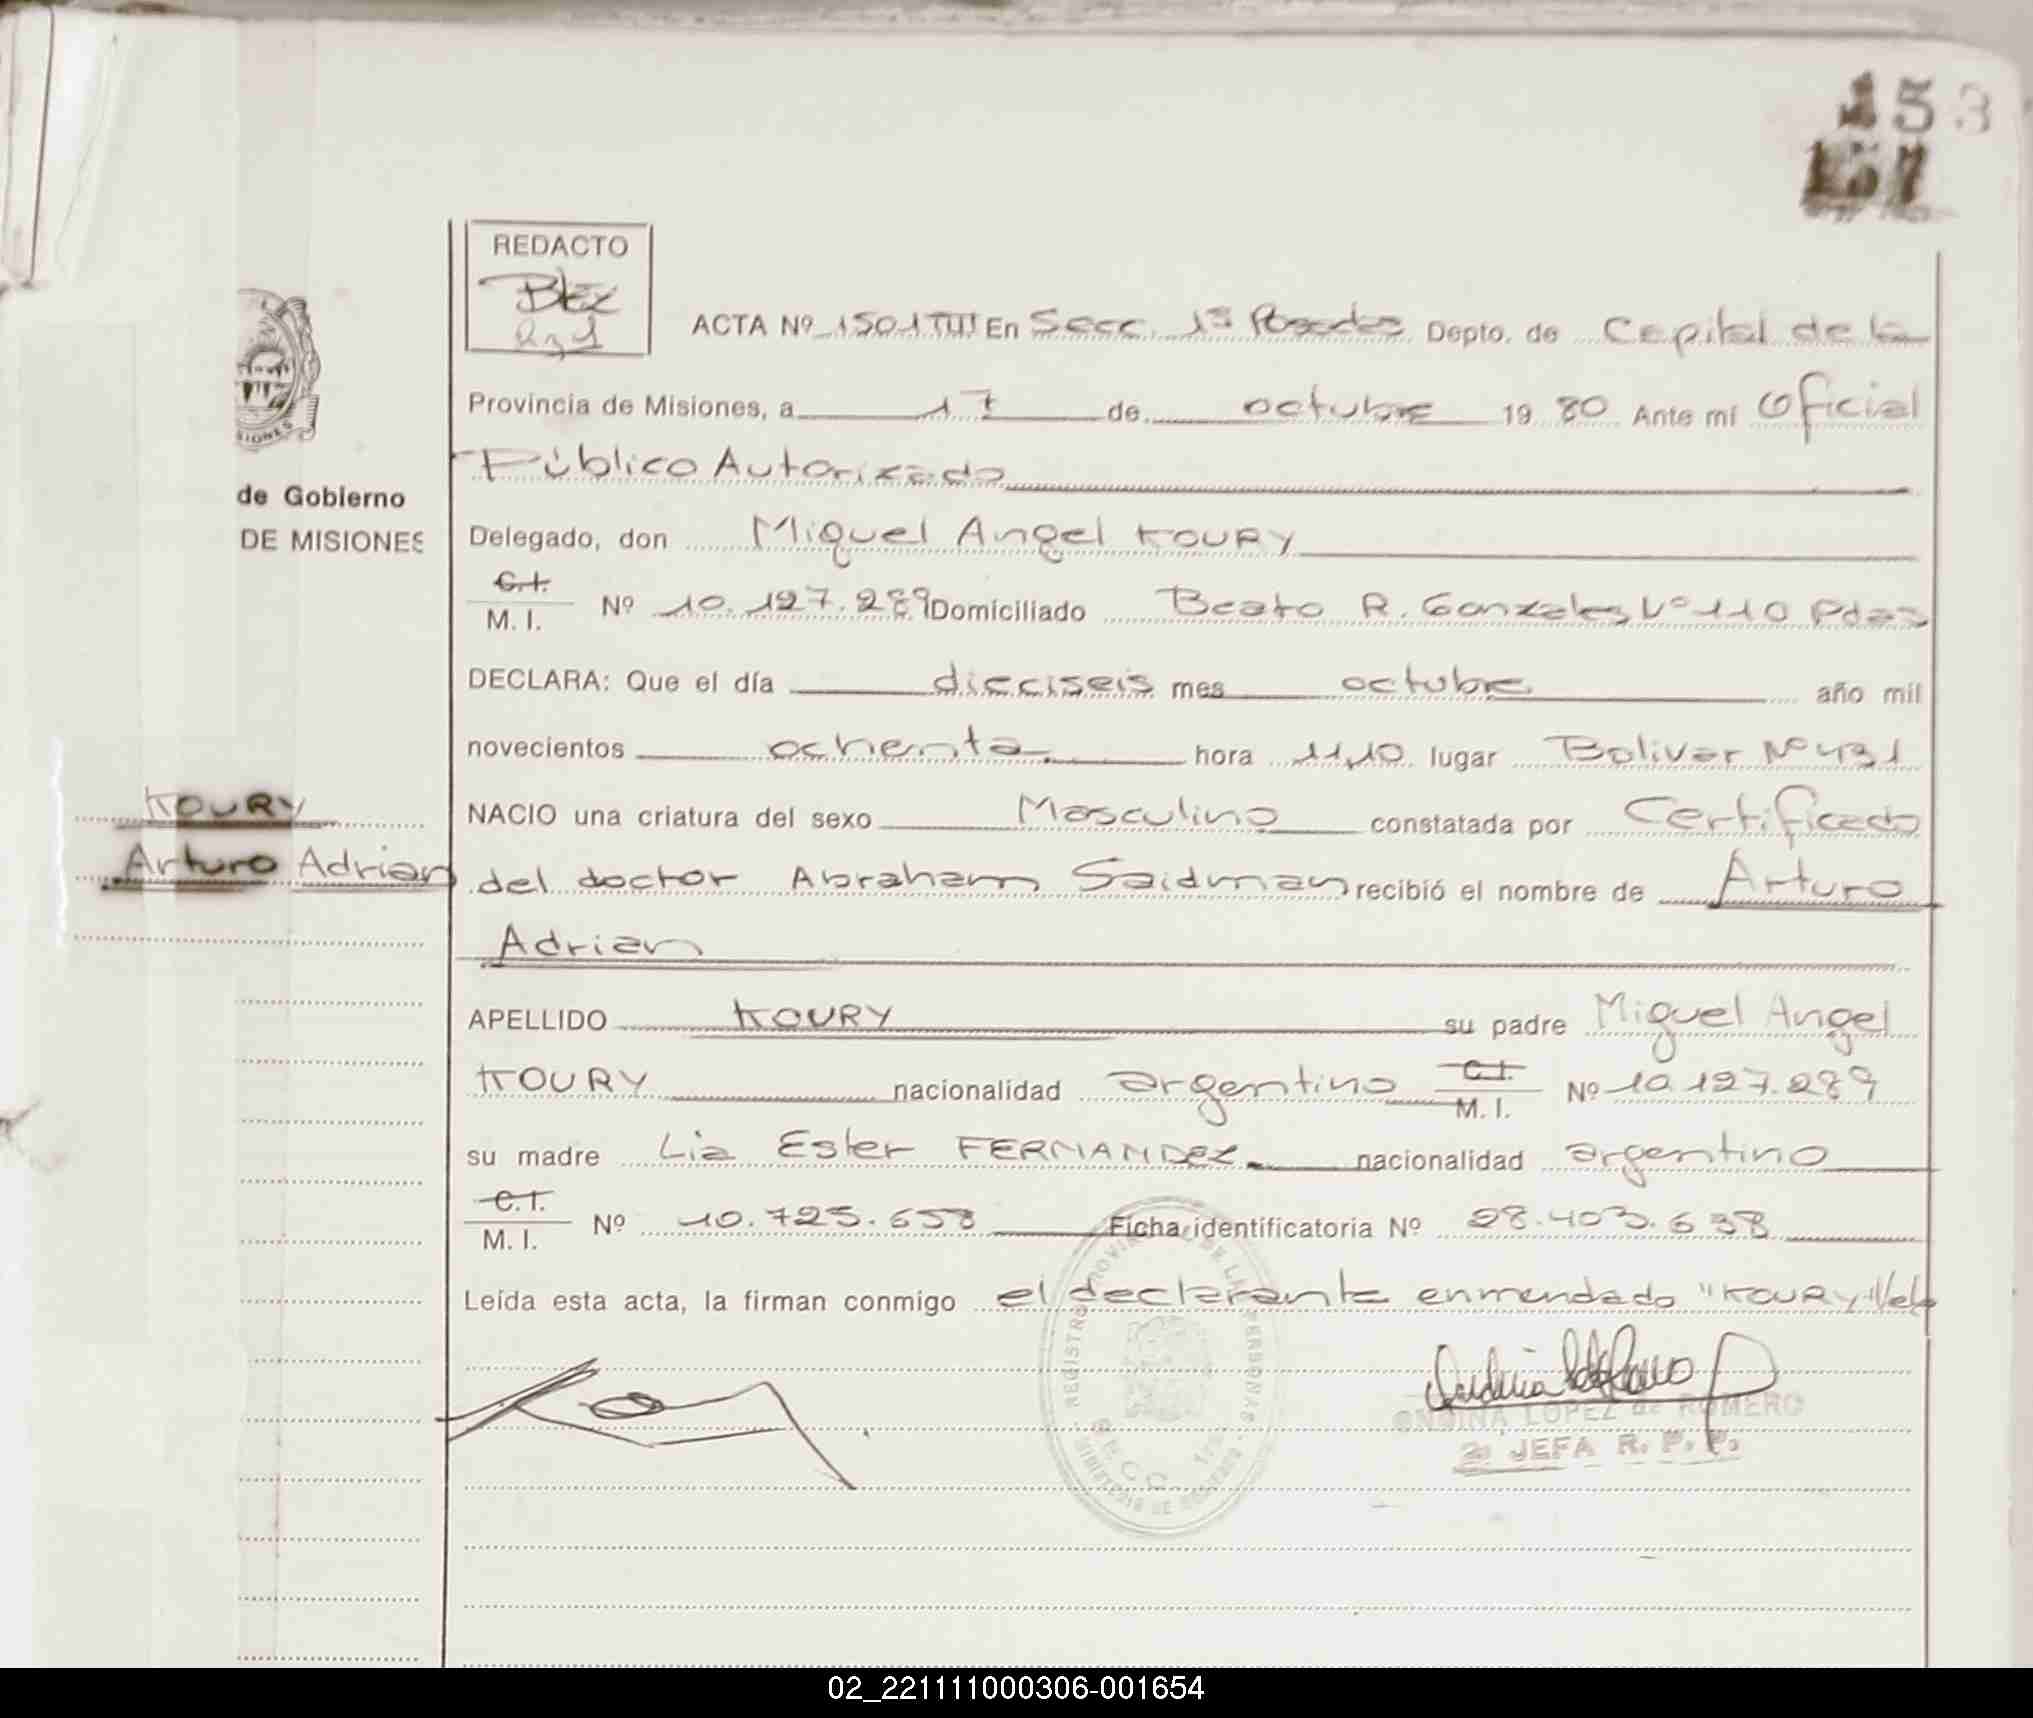 153
157
REDACTO
ACTA Nº 1501 TIII En Secc. 1ª Posadas Depto. de Capital de la
Provincia de Misiones, a 17 de octubre 19 80 Ante mí Oficial
Público Autorizado
de Gobierno
DE MISIONES
Delegado, don Miguel Angel KOURY
C.I.
M. I. Nº 10.127.289 Domiciliado Beato R. Gonzales Nº 110 Pdas
DECLARA: Que el día dieciseis mes octubre año mil
novecientos ochenta hora 11,10 lugar Bolivar Nº 431
KOURY
NACIO una criatura del sexo Masculino constatada por Certificado
Arturo Adrian
del doctor Abraham Saidman recibió el nombre de Arturo
Adrian
APELLIDO KOURY su padre Miguel Angel
KOURY nacionalidad argentino C.I. M. I. Nº 10.127.289
su madre Lia Ester FERNANDEZ nacionalidad argentino
C.I.
M. I. Nº 10.725.658 Ficha identificatoria Nº 28.403.638
Leída esta acta, la firman conmigo el declarante enmendado "KOURY" Vale
REGISTRO PROVINCIAL DE LAS PERSONAS
SECC. 1ª
MINISTERIO DE GOBIERNO
ONDINA LOPEZ de ROMERO
2ª JEFA R. P. P.
02_221111000306-001654